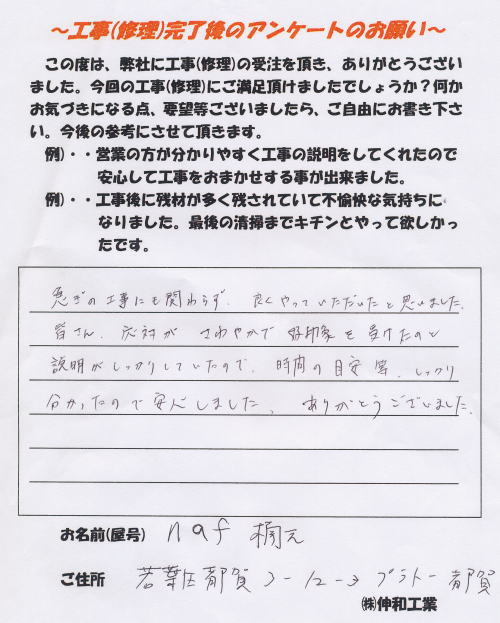 ～工事(修理)完了後のアンケートのお願い～
この度は、弊社に工事(修理)の受注を頂き、ありがとうござい
ました。今回の工事(修理)にご満足頂けましたでしょうか？何か
お気づきになる点、要望等ございましたら、ご自由にお書き下さ
い。今後の参考にさせて頂きます。
例)・・営業の方が分かりやすく工事の説明をしてくれたので
安心して工事をおまかせする事が出来ました。
例)・・工事後に残材が多く残されていて不愉快な気持ちに
なりました。最後の清掃までキチンとやって欲しかっ
たです。
急ぎの工事にも関わらず、良くやっていただいたと思いました。
皆さん、応対が さわやかで 好印象を受けたのと
説明がしっかりしていたので、時間の目安等、しっかり
分かったので安心しました。ありがとうございました。
お名前(屋号) naf
ご住所 若葉区都賀 3-12-3 プラトー都賀
㈱伸和工業